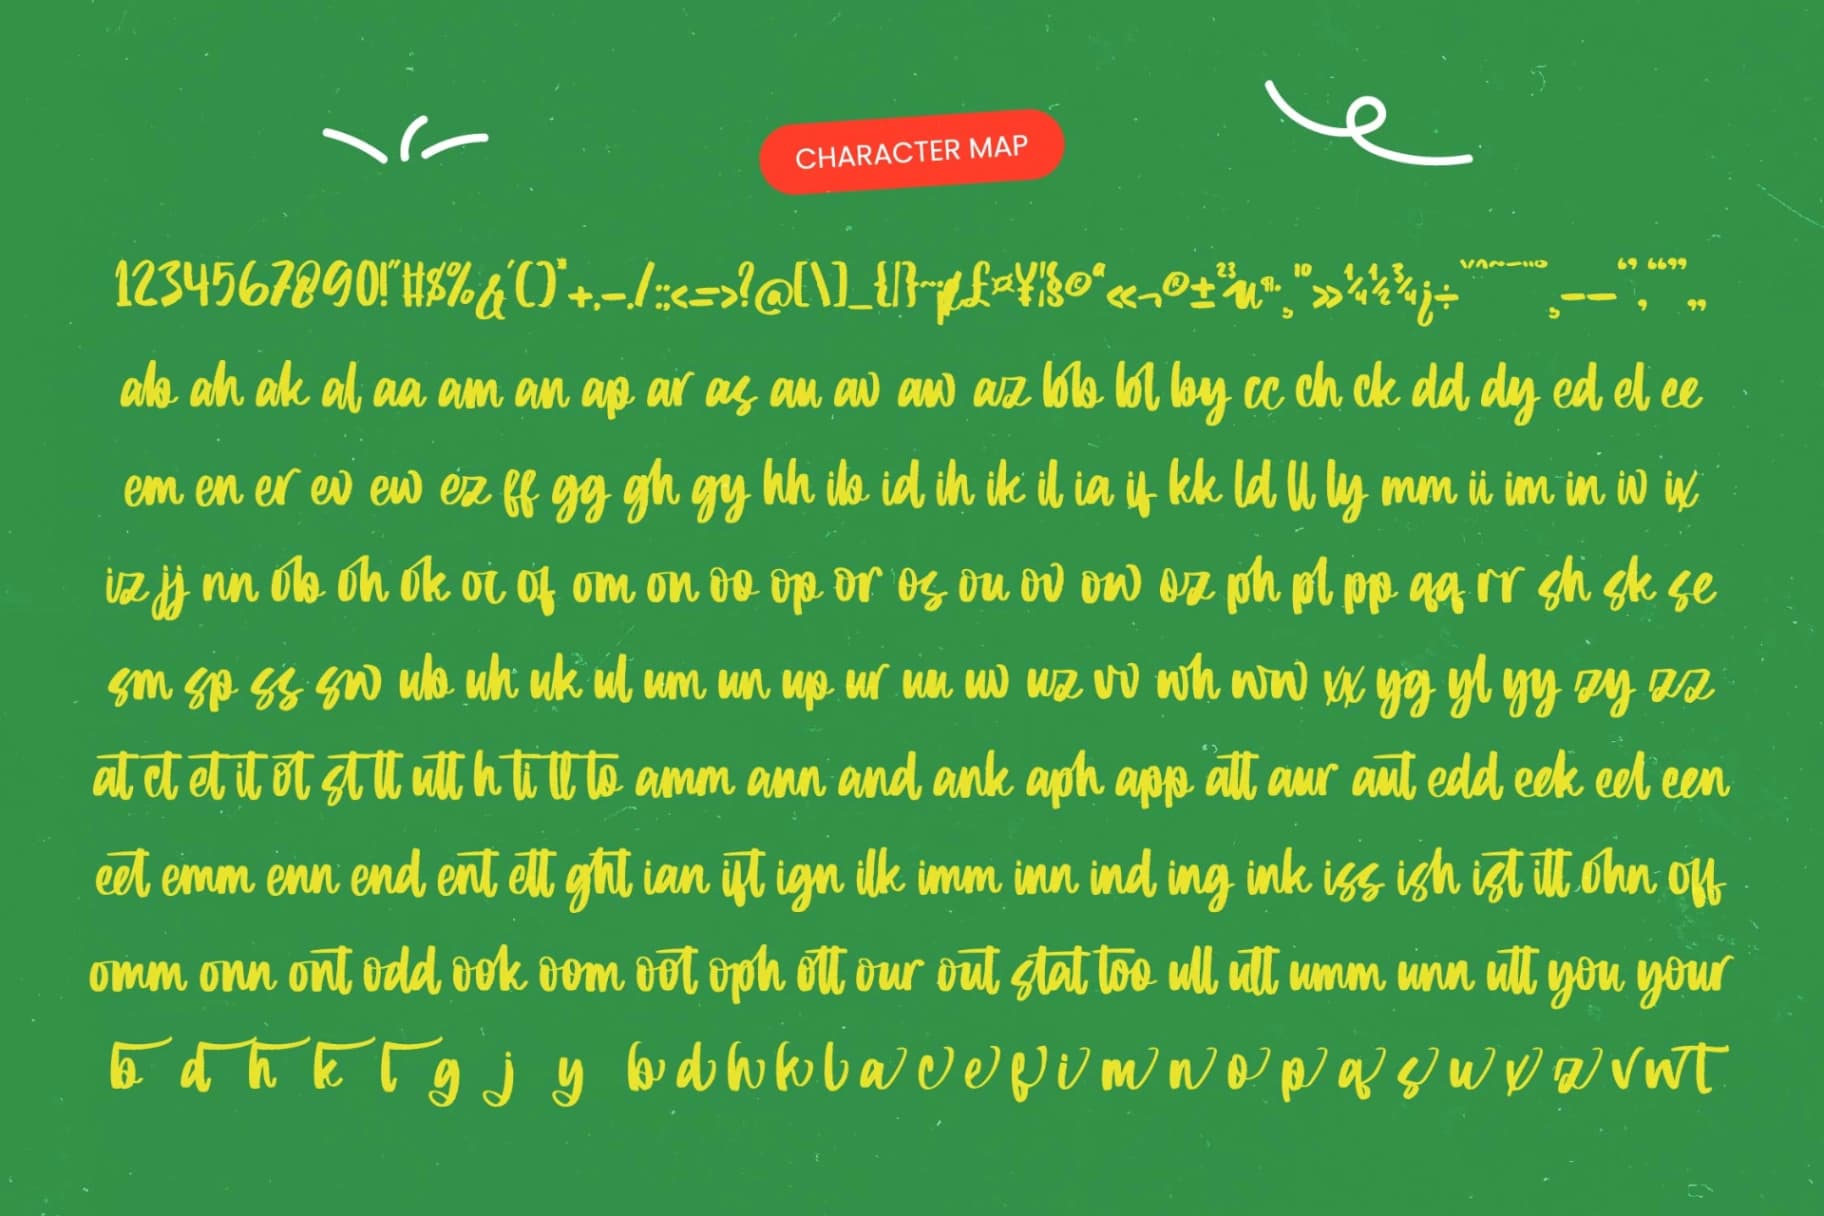 CHARACTER MAP
1234567890!"#$%&'()*+,-./:;<=>?@[\]_{|}~¡¢£¤¥¦§©ª«¬®±²³µ¶·¸¹º»¼½¾¿÷ˇ˘˙˚¸–—‘’‚“”„
ab ah ak al aa am an ap ar as au av aw az bb bl by cc ch ck dd dy ed el ee
em en er ev ew ez ff gg gh gy hh ib id ih ik il ia if kk ld ll ly mm ii im in iv ix
iz jj nn ob oh ok oc of om on oo op or os ou ov ow oz ph pl pp qq rr sh sk se
sm sp ss sw ub uh uk ul um un up ur uu uv uz vv wh ww xx yg yl yy zy zz
at ct et it ot st tt utt h ti tl to amm ann and ank aph app att aur aut edd eek eel een
eet emm enn end ent ett ght ian ift ign ilk imm inn ind ing ink iss ish ist itt ohn off
omm onn ont odd ook oom oot oph ott our out stat too ull utt umm unn utt you your
b d h k l g j y b d h k l a c e f i m n o p q s u x z v w t